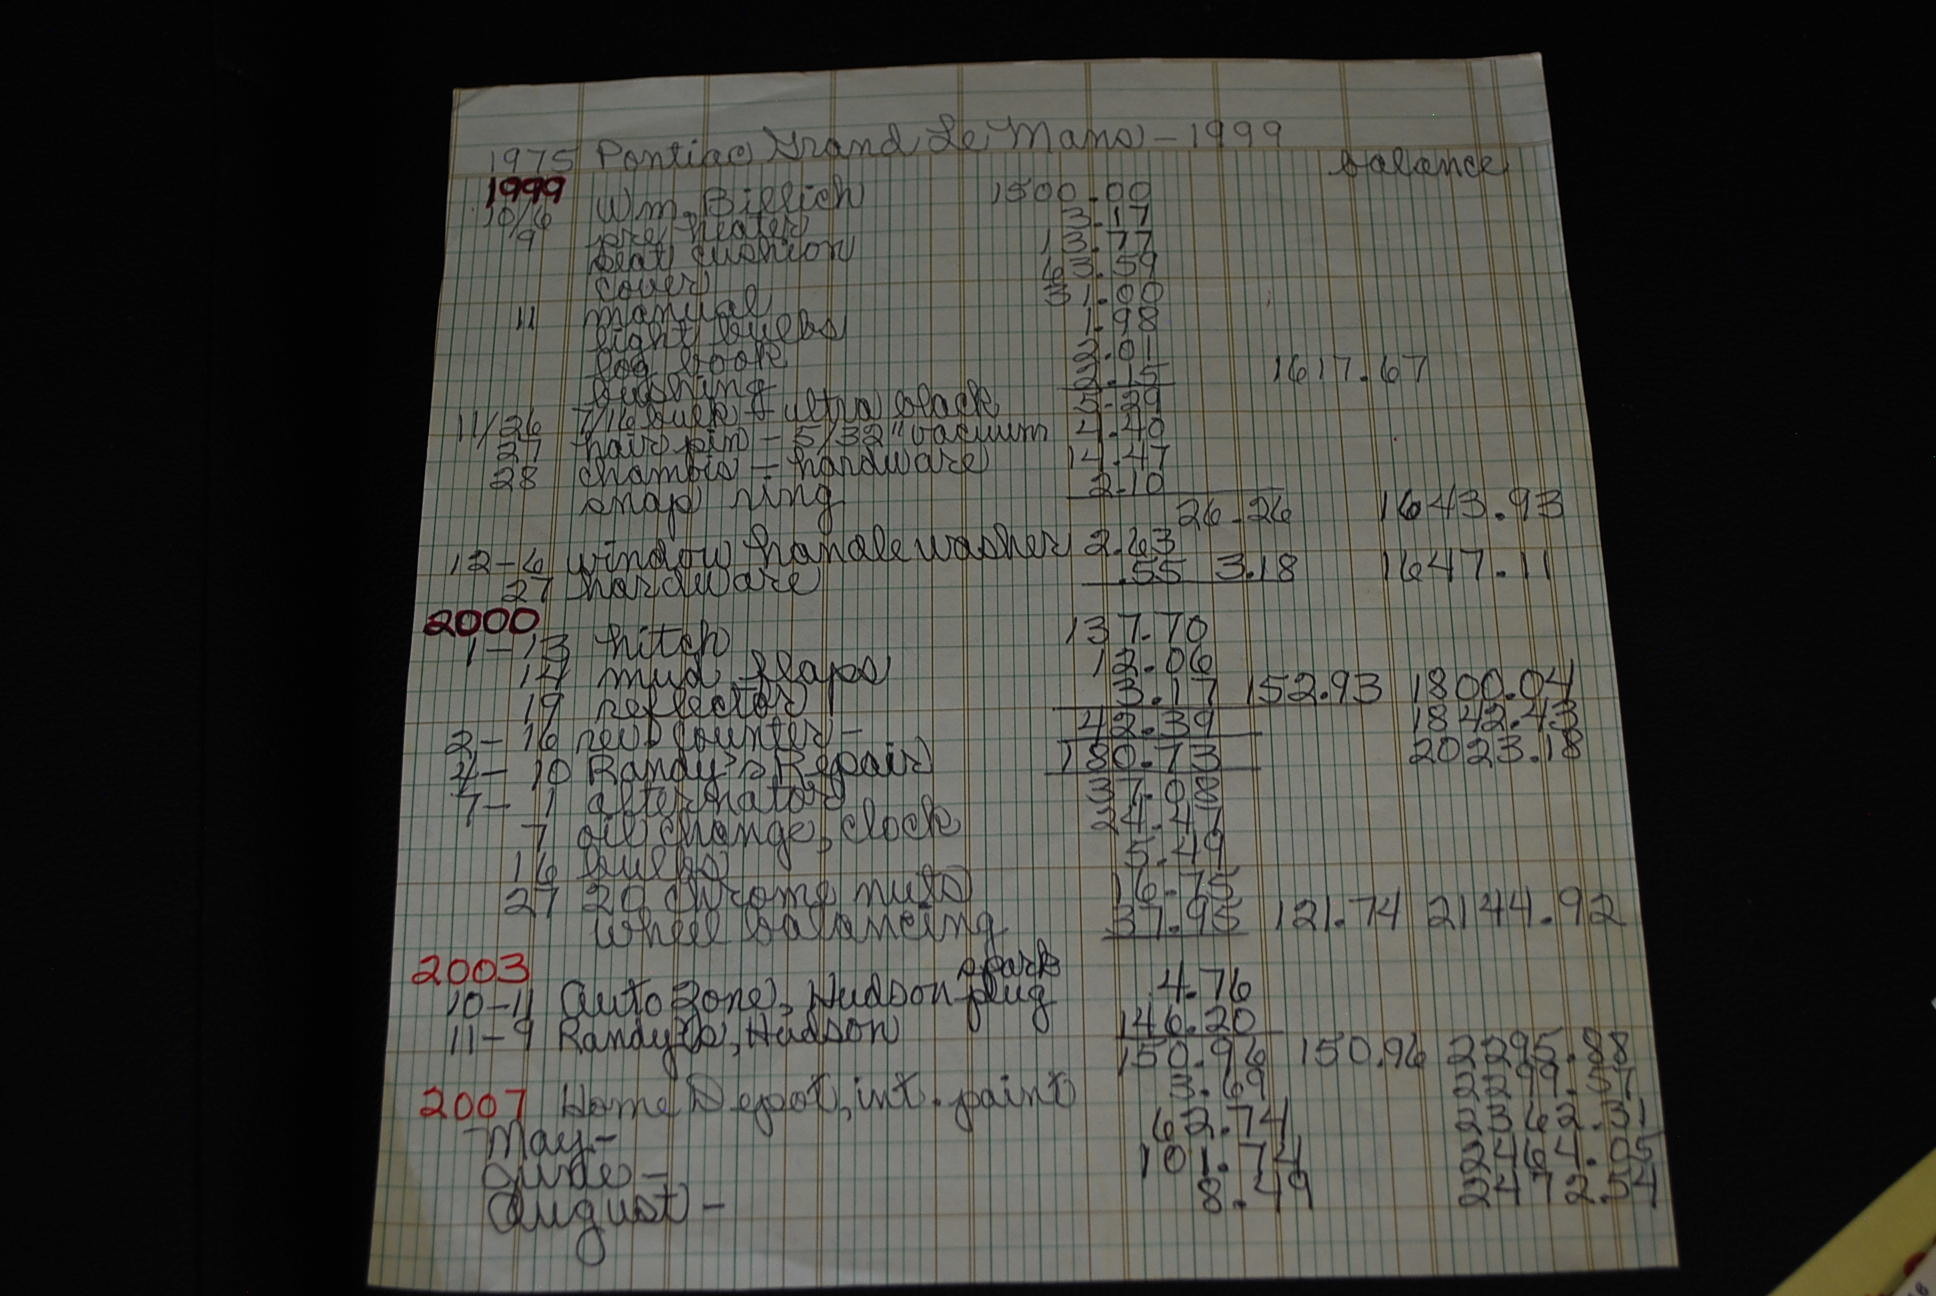 1975 Pontiac Grand Le Mans - 1999
balance
1999
10/6 Wm. Billich 1500.00
9 pre heater 3.17
seat cushion 13.77
cover 63.59
11 manual 31.00
light bulbs 1.98
fog book 2.01
bushing 2.15 1617.67
11/26 7/16 bulk + ultra black 5.29
27 hair pin - 5/32" vacuum 4.40
28 chamois - hardware 14.47
snap ring 2.10
26.26 1643.93
12-6 window handle washer 2.63
27 hardware .55 3.18 1647.11
2000
1-13 hitch 137.70
14 mud flaps 12.06
19 reflector 3.17 152.93 1800.04
2-16 rev counter - 42.39 1842.43
4-10 Randy's Repair 180.73 2023.18
7-1 alternator 37.08
7 oil change, clock 24.47
16 bulbs 5.49
27 20 chrome nuts 16.75
wheel balancing 37.95 121.74 2144.92
2003
10-11 Auto Zone, Hudson spark plug 4.76
11-9 Randy's, Hudson 146.20
150.96 150.96 2295.88
2007 Home Depot, int. paint 3.69 2299.57
May - 62.74 2362.31
June - 101.74 2464.05
August - 8.49 2472.54